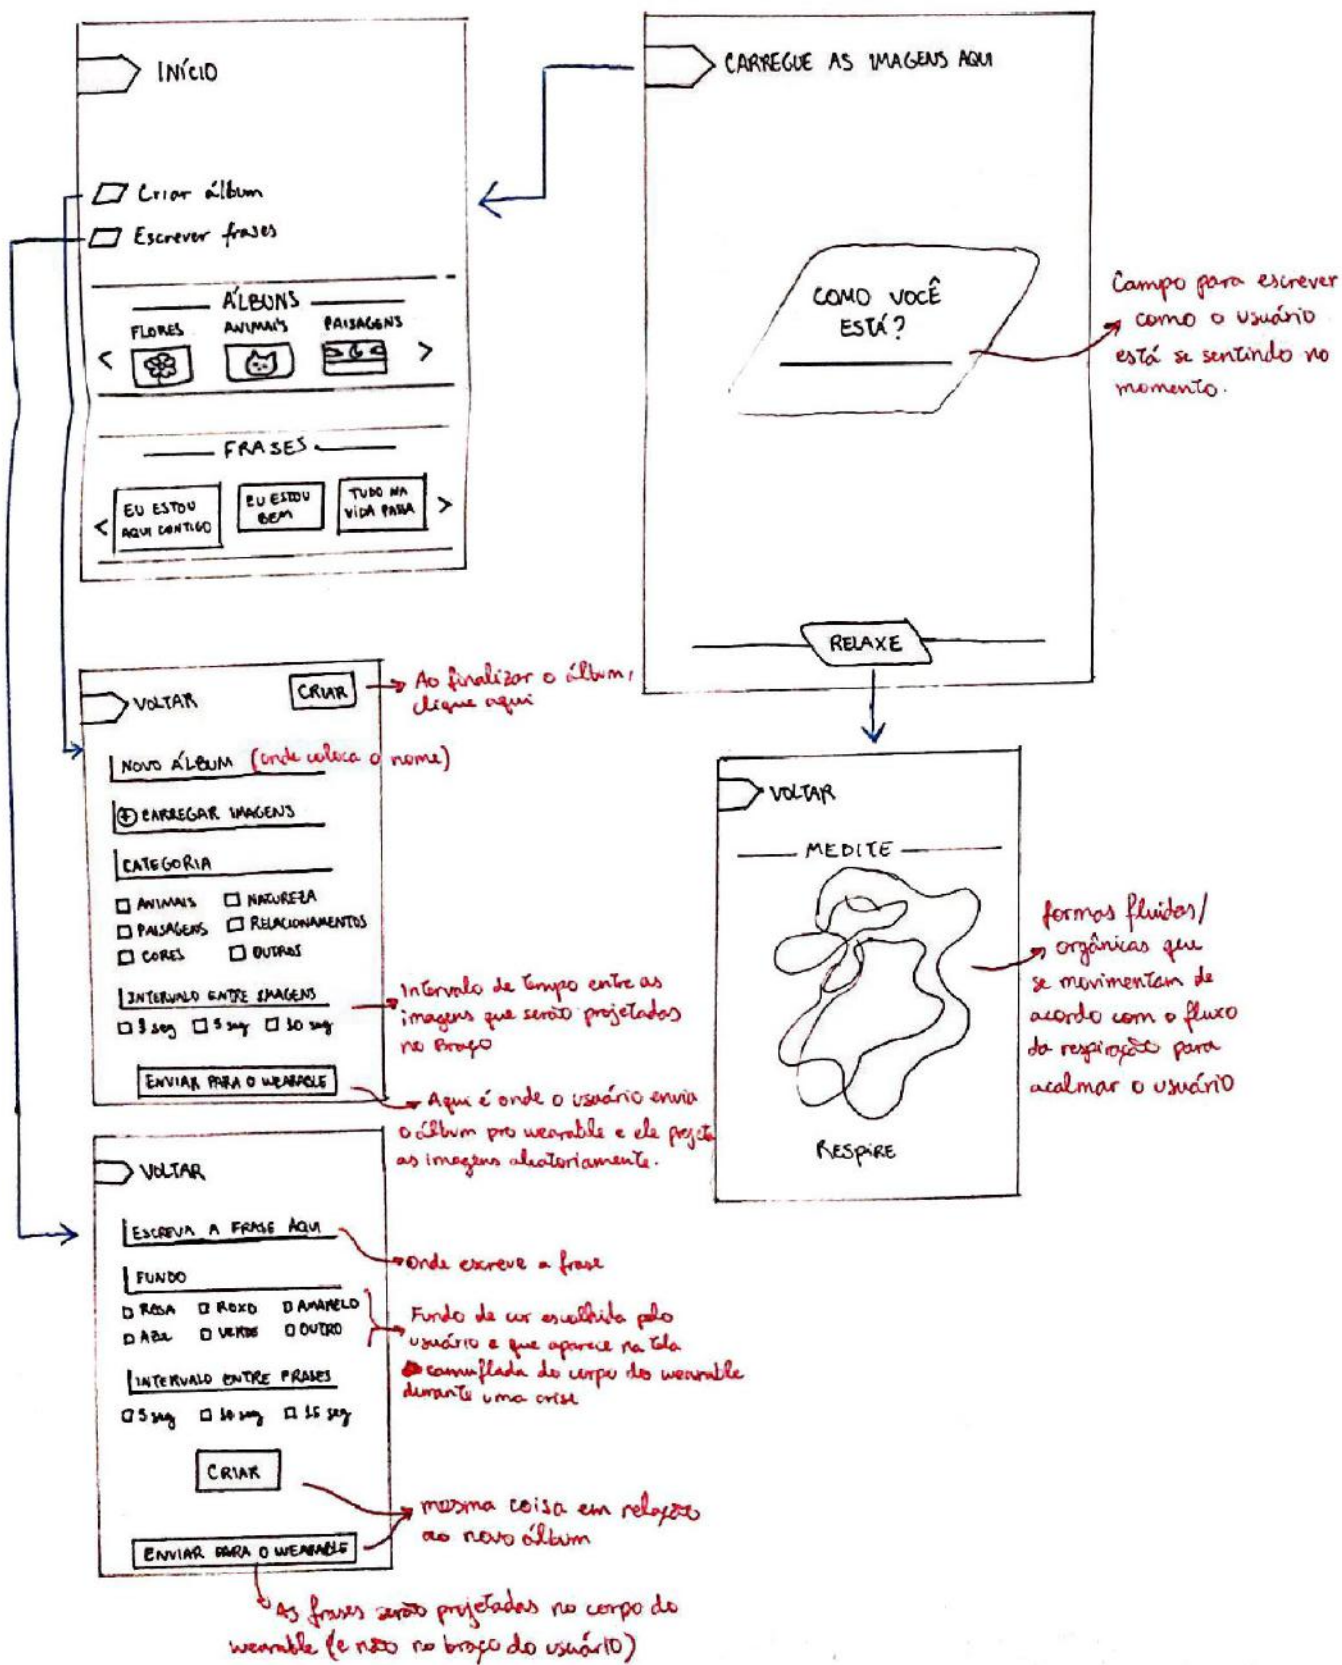 INÍCIO
Criar álbum
Escrever frases
ÁLBUNS
FLORES ANIMAIS PAISAGENS
< >
FRASES
< EU ESTOU
AQUI CONTIGO
EU ESTOU
BEM
TUDO NA
VIDA PASSA >
CARREGUE AS IMAGENS AQUI
COMO VOCÊ
ESTÁ?
Campo para escrever
como o usuário
está se sentindo no
momento.
RELAXE
VOLTAR
CRIAR
Ao finalizar o álbum,
clique aqui
NOVO ÁLBUM (onde coloca o nome)
+ CARREGAR IMAGENS
CATEGORIA
ANIMAIS NATUREZA
PAISAGENS RELACIONAMENTOS
CORES OUTROS
INTERVALO ENTRE IMAGENS
3 seg 5 seg 10 seg
Intervalo de tempo entre as
imagens que serão projetadas
no Braço
ENVIAR PARA O WEARABLE
Aqui é onde o usuário envia
o álbum pro wearable e ele projeta
as imagens aleatoriamente.
VOLTAR
MEDITE
RESPIRE
formas fluidas/
orgânicas que
se movimentam de
acordo com o fluxo
da respiração para
acalmar o usuário
VOLTAR
ESCREVA A FRASE AQUI
Onde escreve a frase
FUNDO
ROSA ROXO AMARELO
AZUL VERDE OUTRO
Fundo de cor escolhida pelo
usuário e que aparece na tela
camuflada do corpo do wearable
durante uma crise
INTERVALO ENTRE FRASES
5 seg 10 seg 15 seg
CRIAR
mesma coisa em relação
ao novo álbum
ENVIAR PARA O WEARABLE
As frases serão projetadas no corpo do
wearable (e não no braço do usuário)